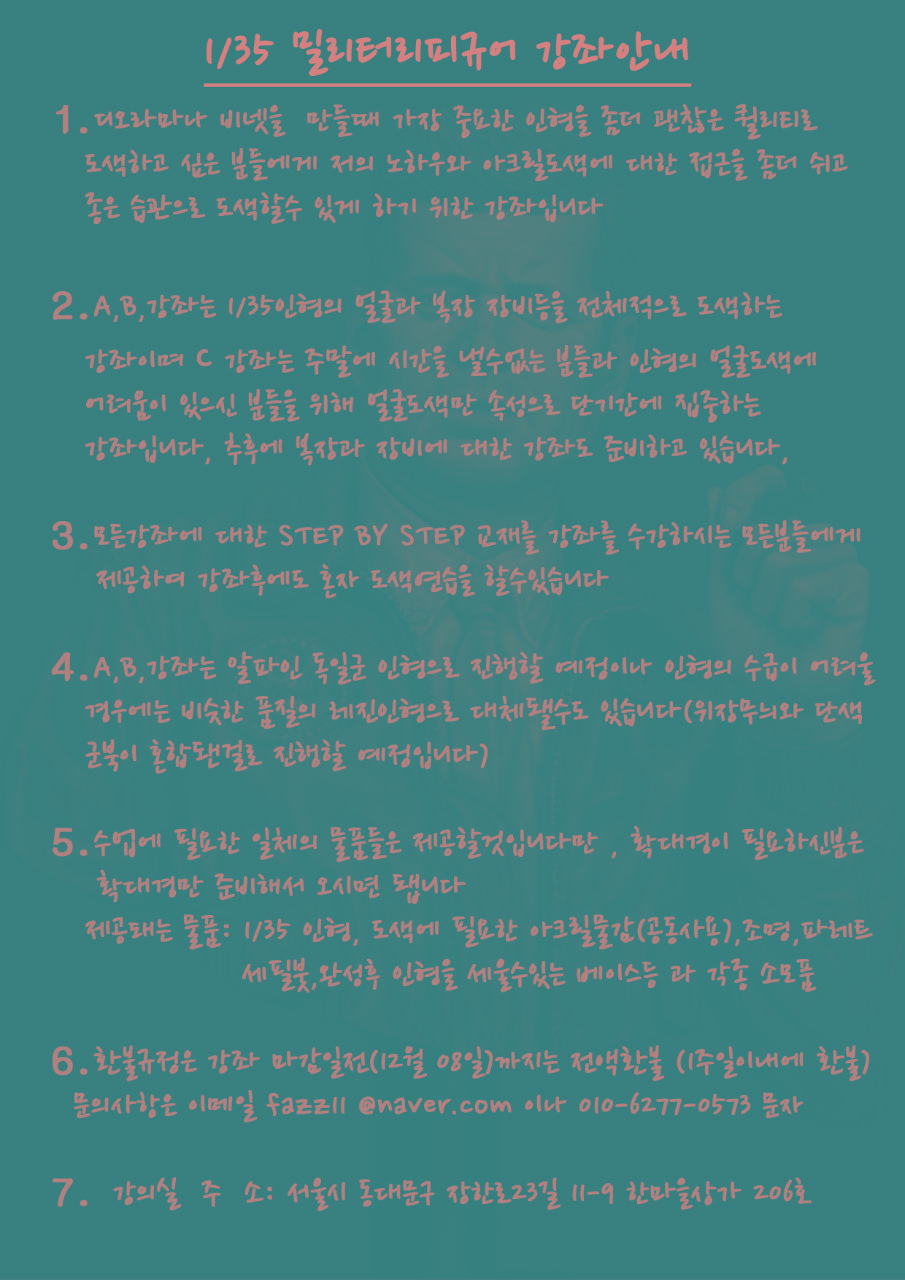 1/35 밀리터리피규어 강좌안내
1. 디오라마나 비넷을 만들때 가장 중요한 인형을 좀더 괜찮은 퀄리티로
도색하고 싶은 분들에게 저의 노하우와 아크릴도색에 대한 접근을 좀더 쉬고
좋은 습관으로 도색할수 있게 하기 위한 강좌입니다
2. A,B,강좌는 1/35인형의 얼굴과 복장 장비등을 전체적으로 도색하는
강좌이며 C 강좌는 주말에 시간을 낼수없는 분들과 인형의 얼굴도색에
어려움이 있으신 분들을 위해 얼굴도색만 속성으로 단기간에 집중하는
강좌입니다, 추후에 복장과 장비에 대한 강좌도 준비하고 있습니다,
3. 모든강좌에 대한 STEP BY STEP 교재를 강좌를 수강하시는 모든분들에게
제공하여 강좌후에도 혼자 도색연습을 할수있습니다
4. A,B,강좌는 알파인 독일군 인형으로 진행할 예정이나 인형의 수급이 어려울
경우에는 비슷한 품질의 레진인형으로 대체됄수도 있습니다(위장무늬와 단색
군복이 혼합됀걸로 진행할 예정입니다)
5. 수업에 필요한 일체의 물품들은 제공할것입니다만 , 확대경이 필요하신분은
확대경만 준비해서 오시면 됍니다
제공돼는 물품: 1/35 인형, 도색에 필요한 아크릴물감(공동사용),조명,파레트
세필붓,완성후 인형을 세울수있는 베이스등 과 각종 소모품
6. 환불규정은 강좌 마감일전(12월 08일)까지는 전액환불 (1주일이내에 환불)
문의사항은 이메일 fazz11 @naver.com 이나 010-6277-0573 문자
7. 강의실 주 소: 서울시 동대문구 장한로23길 11-9 한마을상가 206호